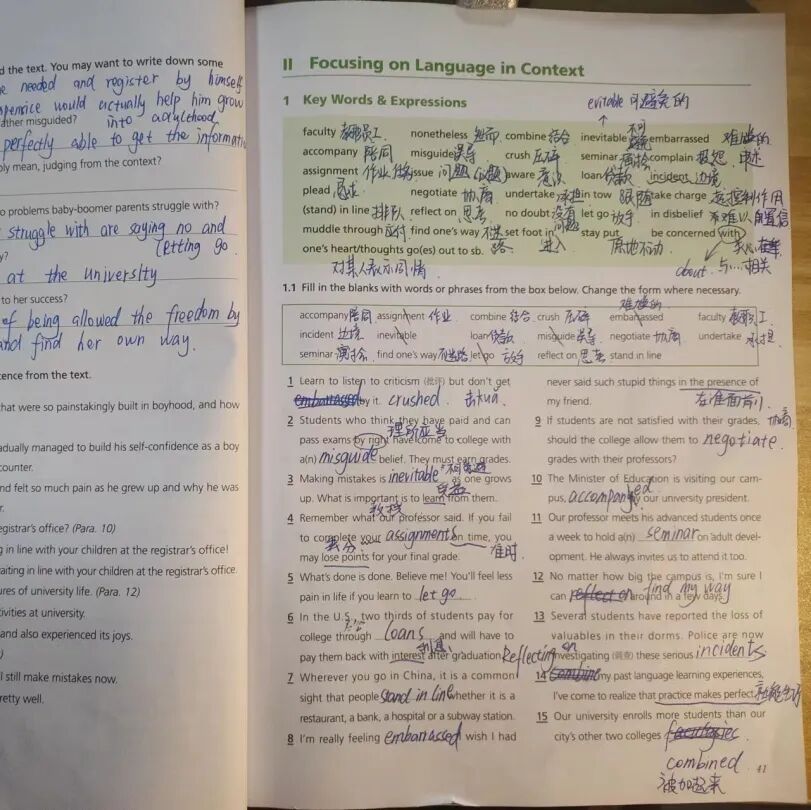 d the text. You may want to write down some
e needed and register by himself
would actually help him grow
ather misguided? into adulthood,
perfectly able to get the informati
ly mean, judging from the context?
o problems baby-boomer parents struggle with?
struggle with are saying no and
y? letting go.
at the university
to her success?
of being allowed the freedom by
and find her own way.
tence from the text.
that were so painstakingly built in boyhood, and how
adually managed to build his self-confidence as a boy
counter.
nd felt so much pain as he grew up and why he was
r.
egistrar's office? (Para. 10)
g in line with your children at the registrar's office!
aiting in line with your children at the registrar's office.
ures of university life. (Para. 12)
tivities at university.
and also experienced its joys.
)
I still make mistakes now.
retty well.
II Focusing on Language in Context
1 Key Words & Expressions
evitable 可避免的
faculty 教职员工 nonetheless 然而 combine 结合 inevitable embarrassed 难堪的
accompany 陪同 misguide 误导 crush 压碎 seminar complain 抱怨
assignment 作业 issue 问题 aware 意识 loan 贷款 incident
plead 恳求 negotiate 协商 undertake 承担 in tow 跟随 take charge
(stand) in line 排队 reflect on 思考 no doubt 没有问题 let go 放手 in disbelief 难以置信
muddle through 应付 find one's way 不迷路 set foot in 进入 stay put 原地不动 be concerned with
one's heart/thoughts go(es) out to sb.
对某人表示同情 about 与...相关
1.1 Fill in the blanks with words or phrases from the box below. Change the form where necessary.
难堪的
accompany 陪同 assignment 作业 combine 结合 crush 压碎 embarrassed faculty 教职员工
incident inevitable loan 贷款 misguide 误导 negotiate 协商 undertake 承担
seminar find one's way 不迷路 let go 放手 reflect on 思考 stand in line
1 Learn to listen to criticism (批评) but don't get
embarrassed by it. crushed.
2 Students who think they have paid and can
理所应当
pass exams by right have come to college with
a(n) misguide belief. They must earn grades.
3 Making mistakes is inevitable as one grows
up. What is important is to learn from them.
教授
4 Remember what our professor said. If you fail
to complete your assignments on time, you
丢分 准时
may lose points for your final grade.
5 What's done is done. Believe me! You'll feel less
pain in life if you learn to let go.
6 In the U.S. two thirds of students pay for
college through loans and will have to
利息
pay them back with interest after graduation.
7 Wherever you go in China, it is a common
sight that people stand in line whether it is a
restaurant, a bank, a hospital or a subway station.
8 I'm really feeling embarrassed wish I had
never said such stupid things in the presence of
my friend.
9 If students are not satisfied with their grades, 协商
should the college allow them to negotiate
grades with their professors?
10 The Minister of Education is visiting our cam-
pus, accompanied by our university president.
11 Our professor meets his advanced students once
a week to hold a(n) seminar on adult devel-
opment. He always invites us to attend it too.
12 No matter how big the campus is, I'm sure I
can reflect on find my way around in a few days.
13 Several students have reported the loss of
valuables in their dorms. Police are now
investigating (调查) these serious incidents
Reflecting on
14 combine my past language learning experiences,
I've come to realize that practice makes perfect. 熟能生巧
15 Our university enrolls more students than our
city's other two colleges
combined
被加起来
41